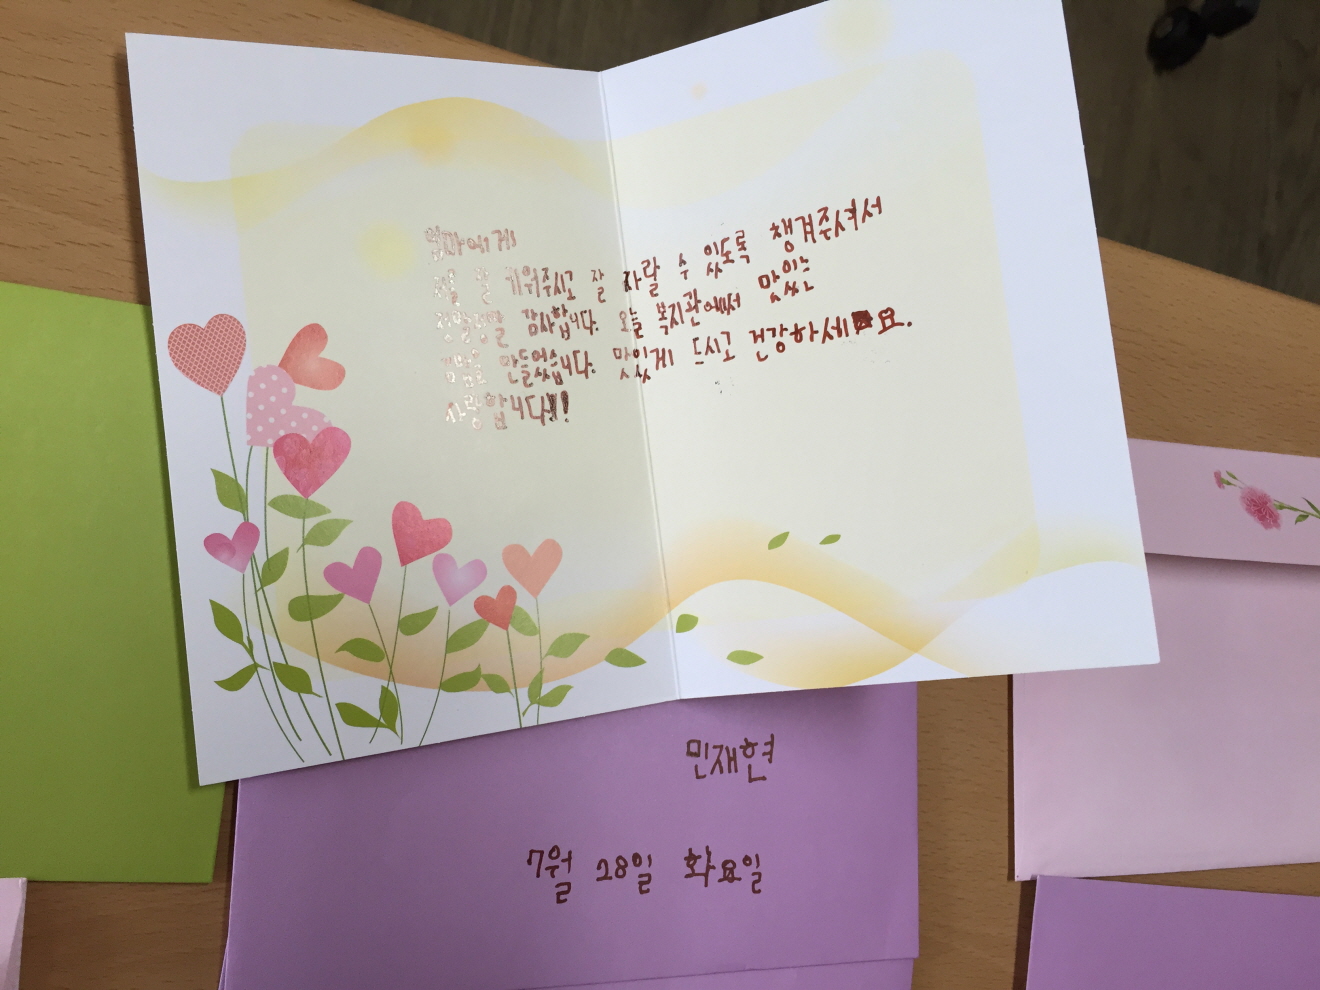 엄마에게
저를 잘 키워주시고 잘 자랄 수 있도록 챙겨주셔서
정말정말 감사합니다. 오늘 복지관에서 맛있는
만들었습니다. 맛있게 드시고 건강하세요.
사랑합니다!!
민재현
7월 28일 화요일